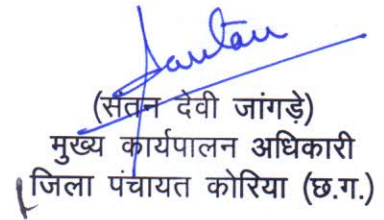 (संतन देवी जांगड़े)
मुख्य कार्यपालन अधिकारी
जिला पंचायत कोरिया (छ.ग.)